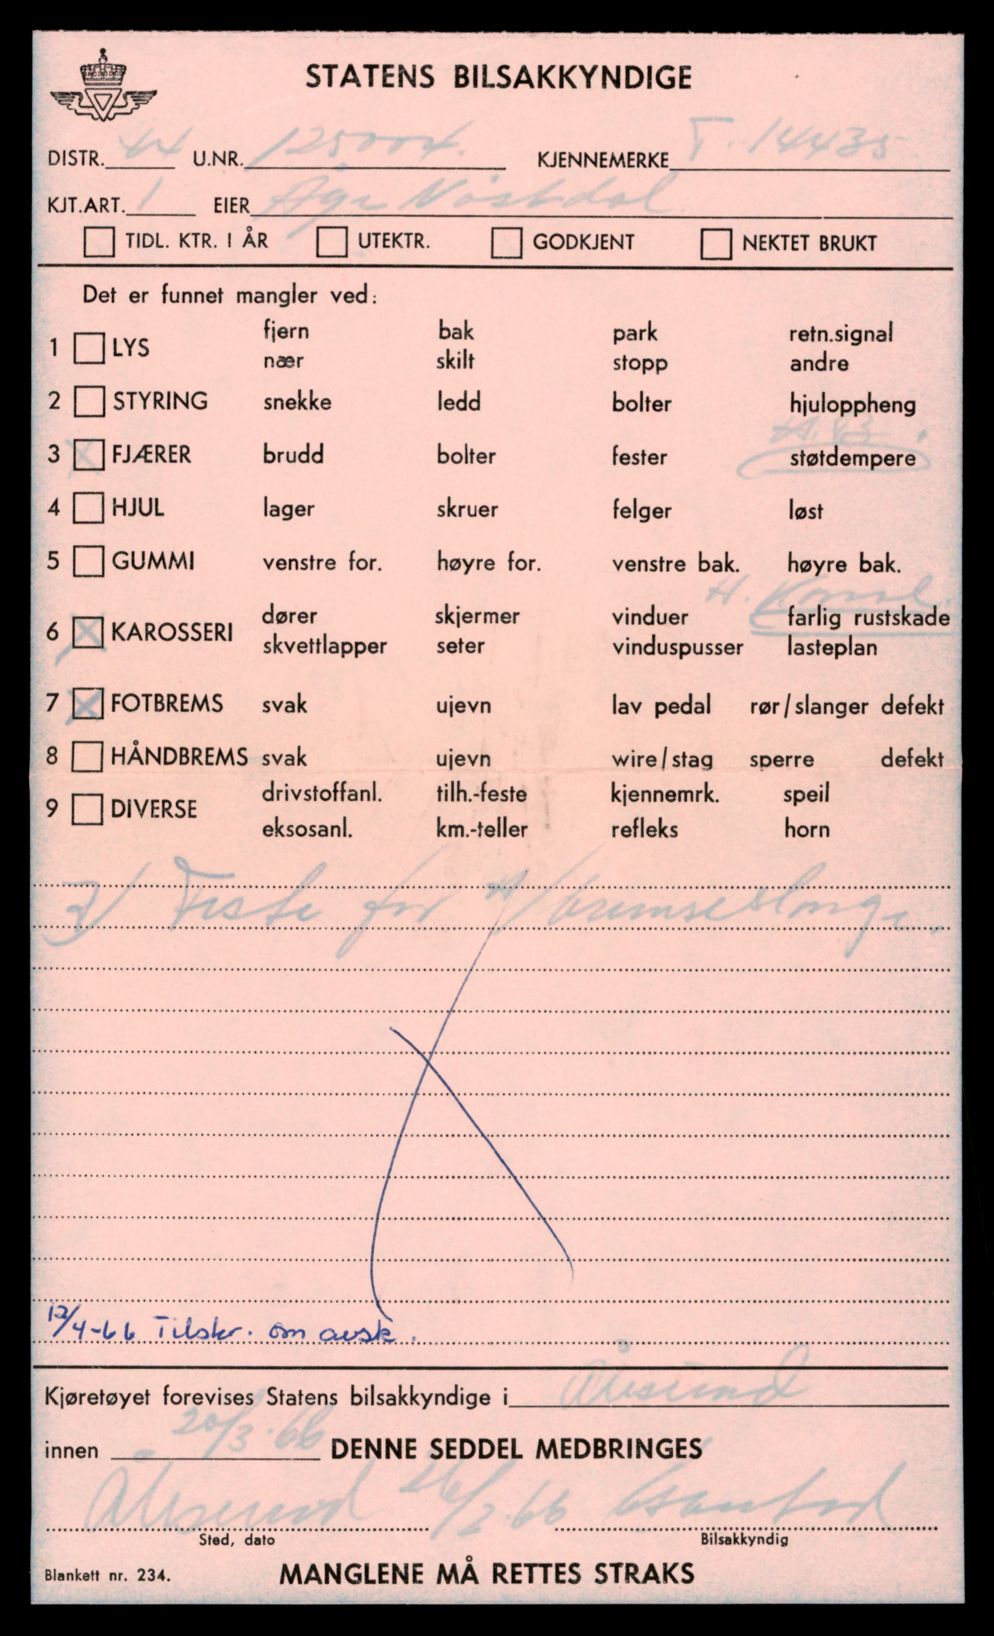 STATENS BILSAKKYNDIGE
DISTR. 44 U.NR. 125004. KJENNEMERKE T. 14435
KJT.ART. 1 EIER Åge Nøstdal
TIDL. KTR. I ÅR UTEKTR. GODKJENT NEKTET BRUKT
Det er funnet mangler ved:
1 LYS fjern bak park retn.signal
nær skilt stopp andre
2 STYRING snekke ledd bolter hjuloppheng
3 FJÆRER brudd bolter fester støtdempere
4 HJUL lager skruer felger løst
5 GUMMI venstre for. høyre for. venstre bak. høyre bak.
6 KAROSSERI dører skjermer vinduer farlig rustskade
skvettlapper seter vinduspusser lasteplan
7 FOTBREMS svak ujevn lav pedal rør/slanger defekt
8 HÅNDBREMS svak ujevn wire/stag sperre defekt
9 DIVERSE drivstoffanl. tilh.-feste kjennemrk. speil
eksosanl. km.-teller refleks horn
7/ Feste for H/bremseslange.
12/4-66 Tilskr. om avsk.
Kjøretøyet forevises Statens bilsakkyndige i Ålesund
innen 20/3-66 DENNE SEDDEL MEDBRINGES
Ålesund 26/2-66
Sted, dato Bilsakkyndig
Blankett nr. 234. MANGLENE MÅ RETTES STRAKS